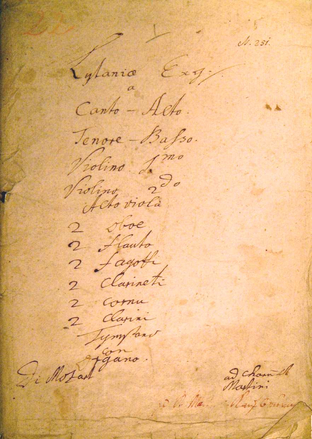 N. 251.
Lytaniæ
a
Canto – Alto.
Tenore – Basso.
Violino 1mo
Violino 2do
Alto viola
2 oboe
2 flauto
2 fagotti
2 Clarineti
2 cornu
2 Clarini
Tympano
con
Organo.
Di Mozart
ad
Martini